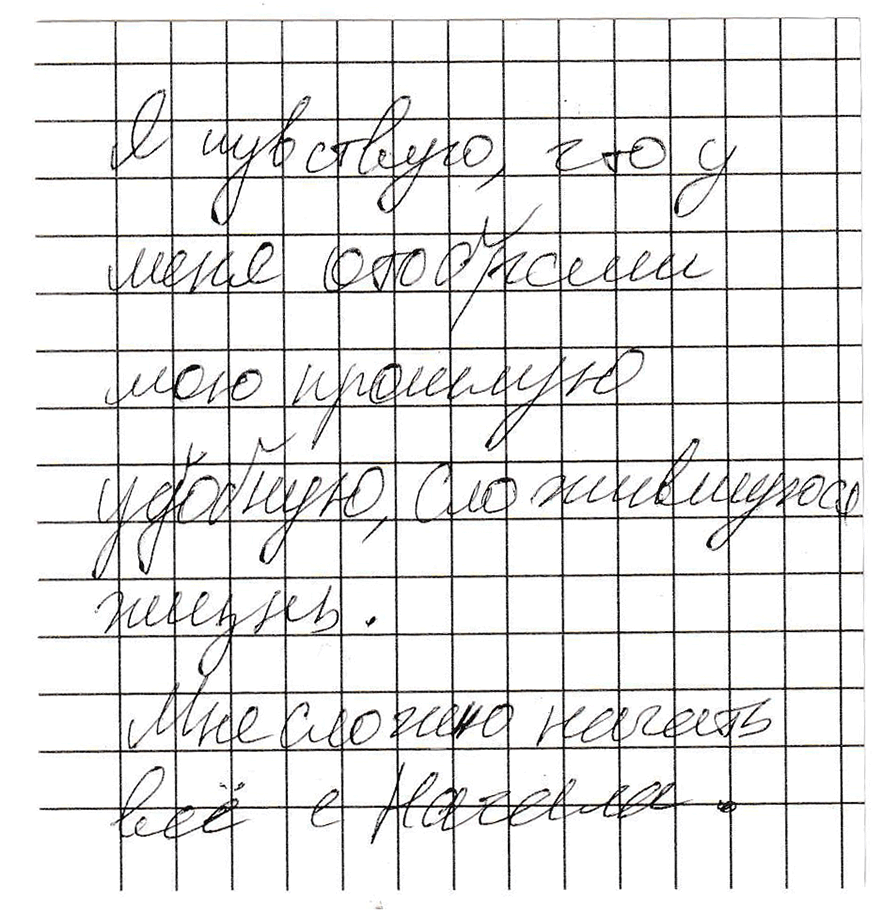 Я чувствую, что у
меня отобрали
мою прошлую
удобную, сложившуюся
жизнь.
Мне сложно начать
всё с Начала.